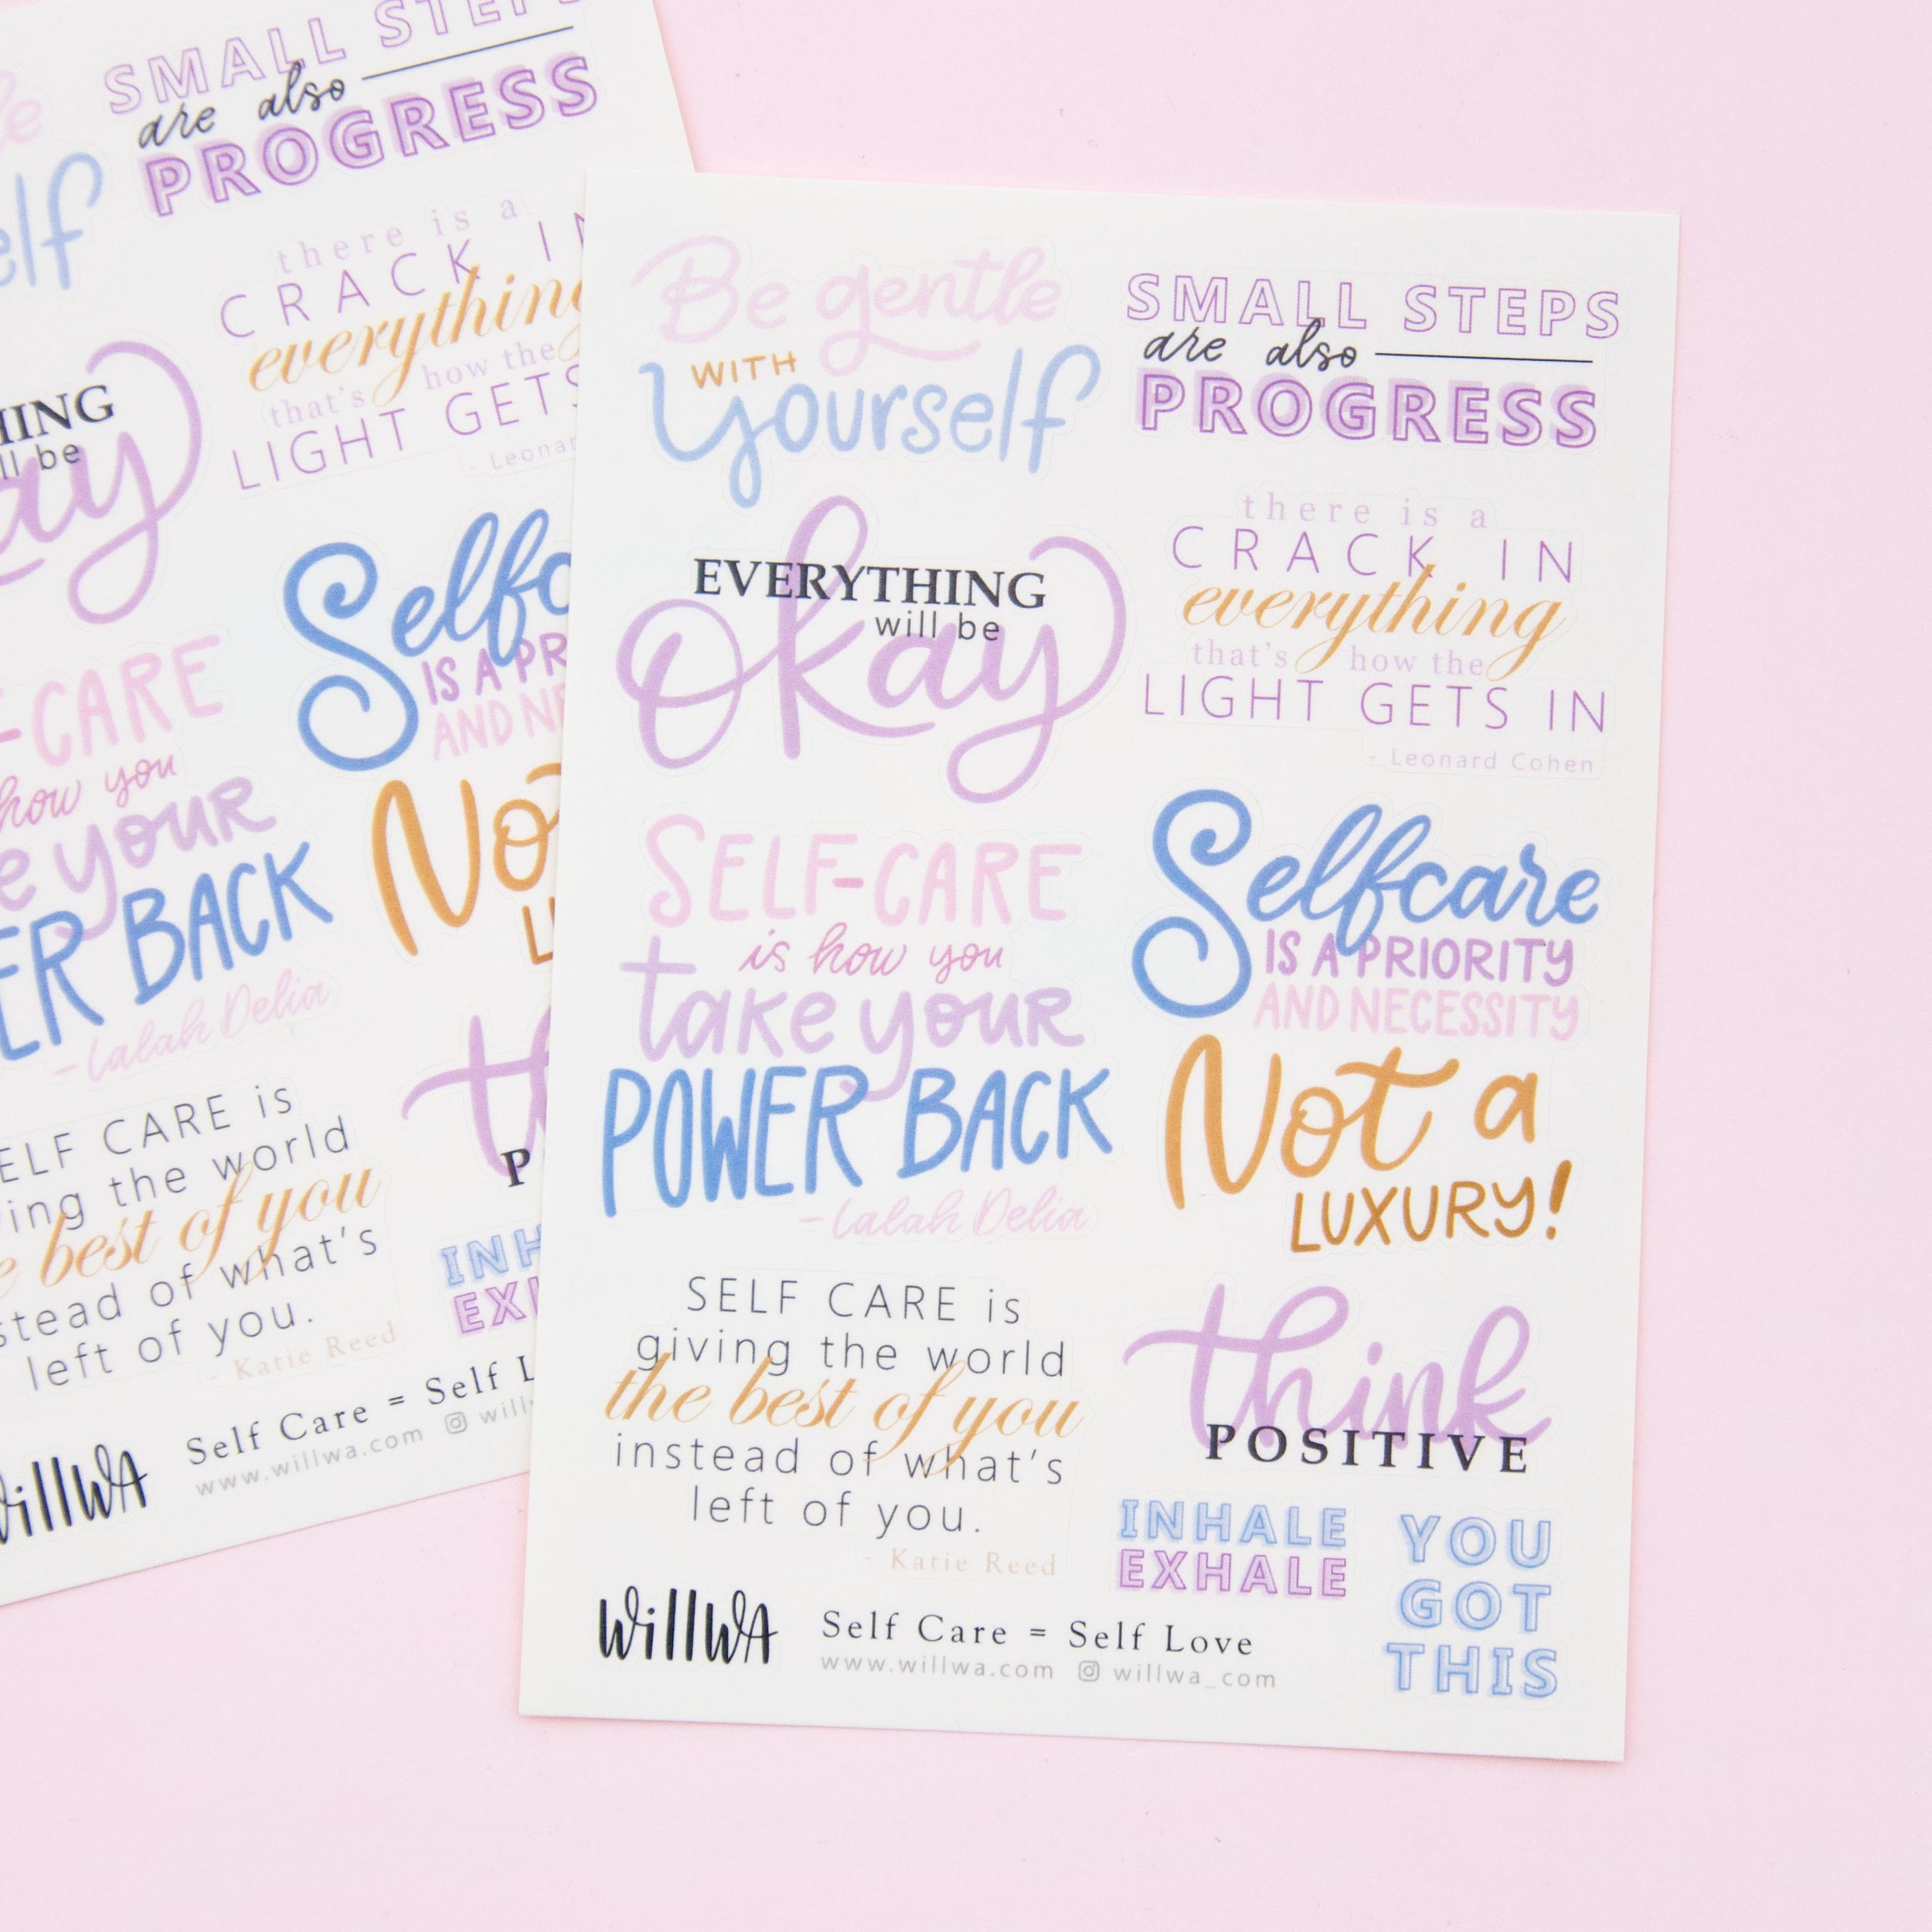 SMALL STEPS
are also
PROGRESS
elf
there is a
CRACK IN
everything
that's how the
LIGHT GETS
- Leonar
HING
ll be
ay
Selfc
IS A PR
AND NE
No
L
-CARE
how you
e your
ER BACK
- Lalah Delia
th
P
ELF CARE is
ing the world
e best of you
stead of what's
left of you.
- Katie Reed
INH
EXH
WillWA
Self Care = Self L
www.willwa.com willw
Be gentle
WITH
yourself
SMALL STEPS
are also
PROGRESS
EVERYTHING
will be
okay
there is a
CRACK IN
everything
that's how the
LIGHT GETS IN
- Leonard Cohen
SELF-CARE
is how you
take your
POWER BACK
- Lalah Delia
Selfcare
IS A PRIORITY
AND NECESSITY
Not a
LUXURY!
SELF CARE is
giving the world
the best of you
instead of what's
left of you.
- Katie Reed
think
POSITIVE
INHALE
EXHALE
YOU
GOT
THIS
WillWA
Self Care = Self Love
www.willwa.com willwa_com